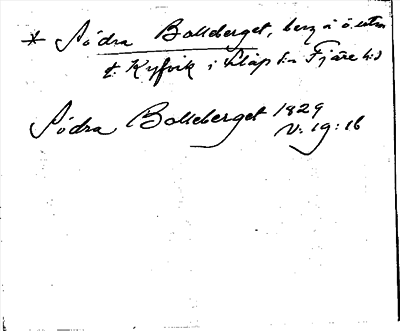 * Södra Bolleberget, berg i ö. utm.
t. Kyvik i Släp sn Fjäre hd
Södra Bolleberget 1829
V: 19: 16